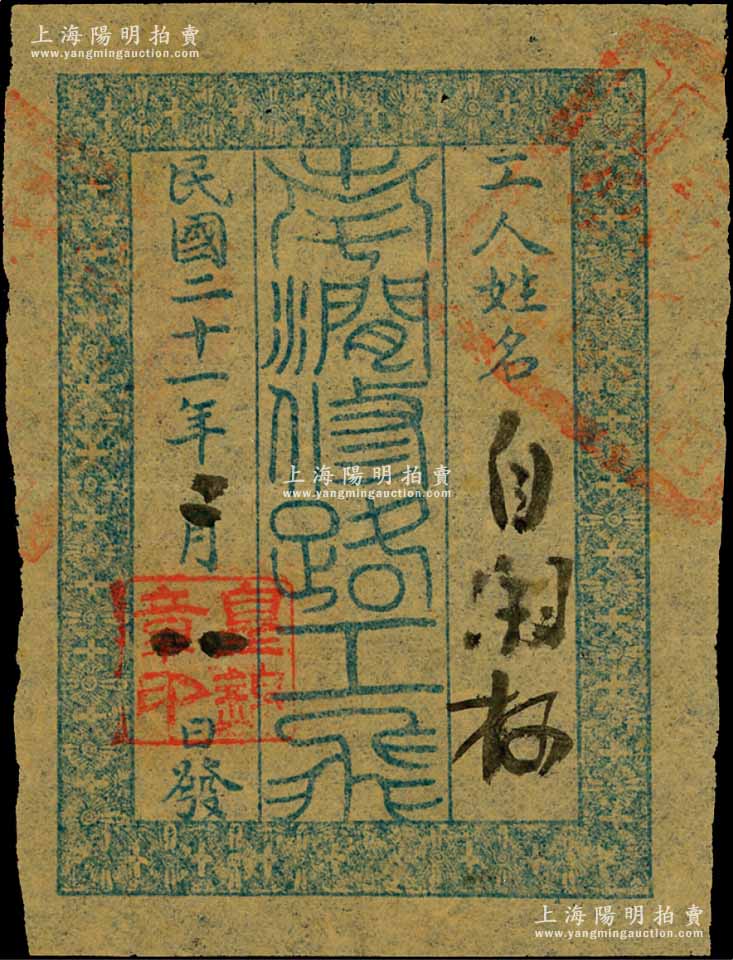 上海陽明拍賣
www.yangmingauction.com
工人姓名 自
老澗修路工飛
民國二十一年二月 日發
章印
上海陽明拍賣
www.yangmingauction.com
上海陽明拍賣
www.yangmingauction.com